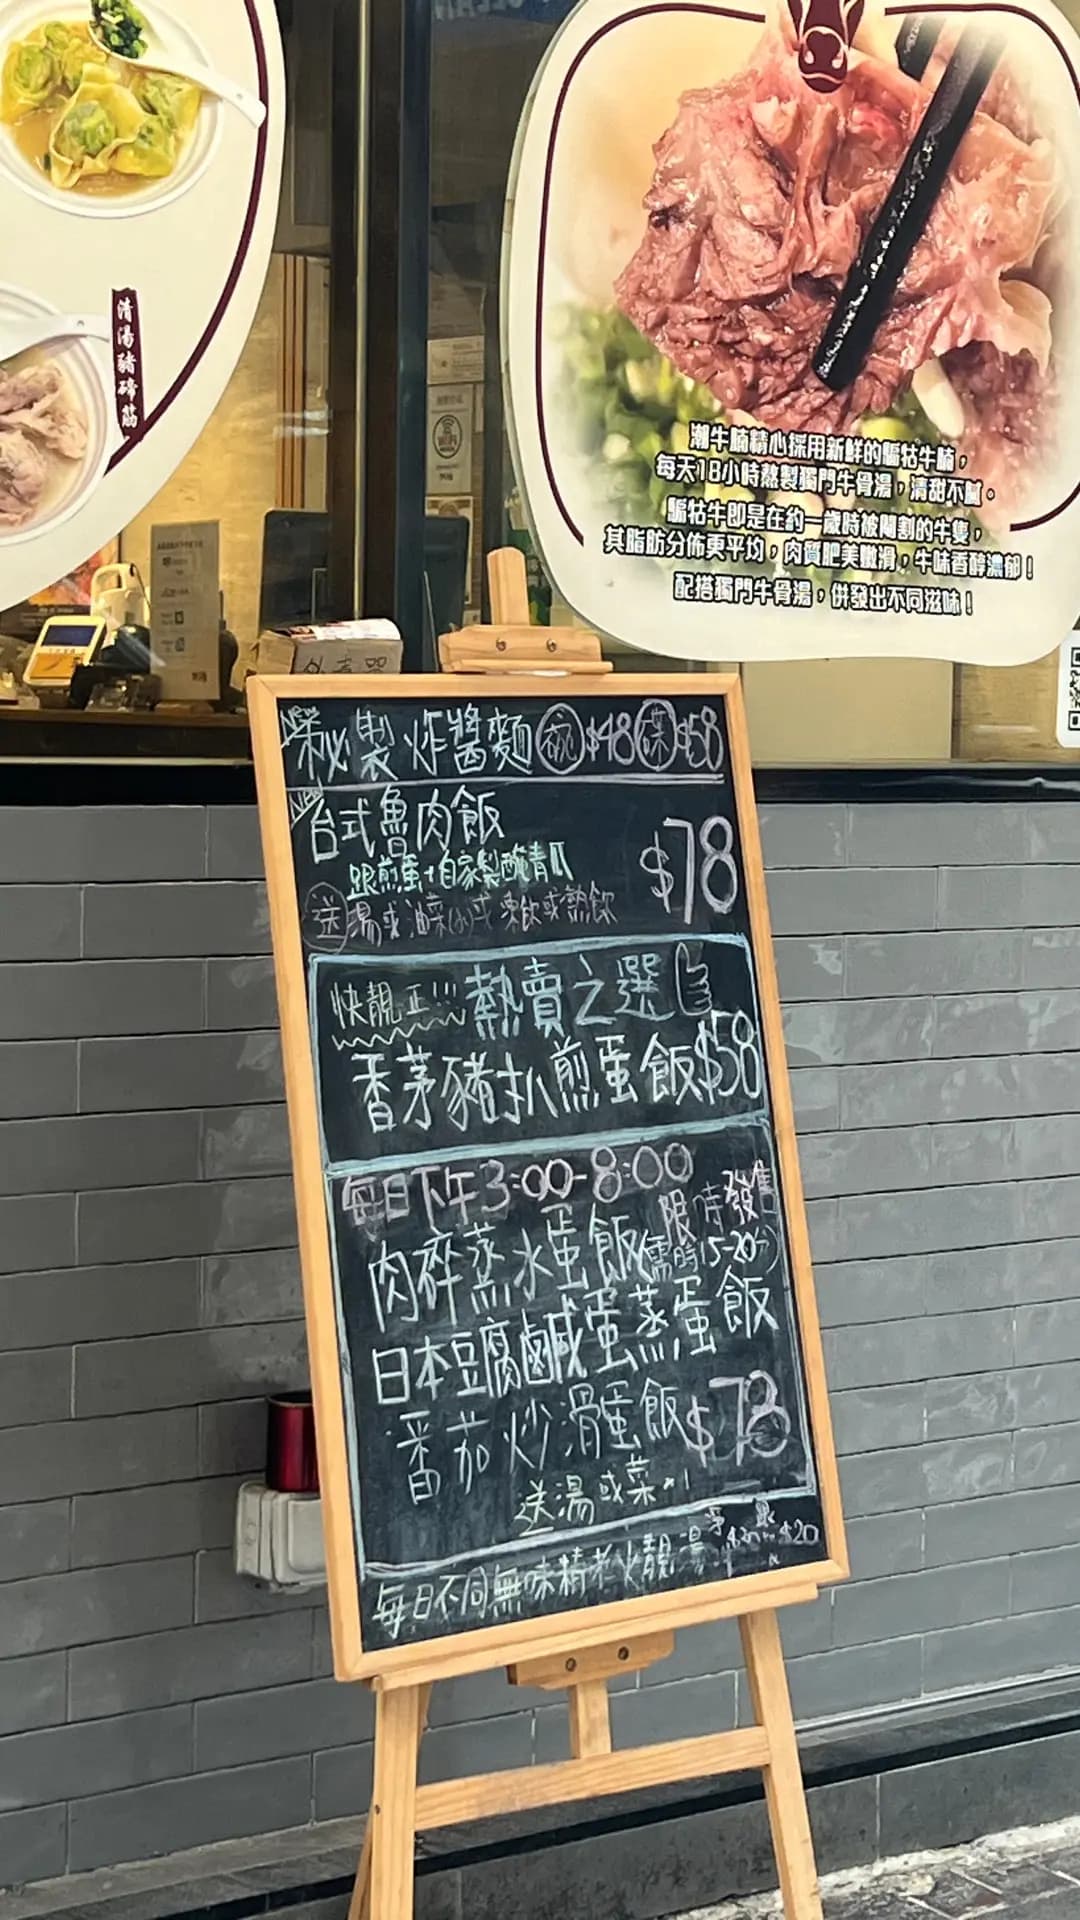 清湯豬蹄筋
潮牛腩精心採用新鮮的騸牯牛腩，
每天18小時熬製獨門牛骨湯，清甜不膩。
騸牯牛即是在約一歲時被閹割的牛隻，
其脂肪分佈更平均，肉質肥美嫩滑，牛味香醇濃郁！
配搭獨門牛骨湯，併發出不同滋味！
WiFi
外賣器
NEW
秘製炸醬麵 碗 $48 碟 $58
NEW
台式魯肉飯
$78
跟煎蛋+自家製醃青瓜
送 湯或油菜(小)或凍飲或熱飲
快靚正!!! 熱賣之選
香茅豬扒煎蛋飯 $58
每日下午3:00-8:00
限時發售
肉碎蒸水蛋飯 (需時15-20分)
日本豆腐鹹蛋蒸蛋飯
番茄炒滑蛋飯 $78
送湯或菜x1
每日不同無味精老火靚湯 $20